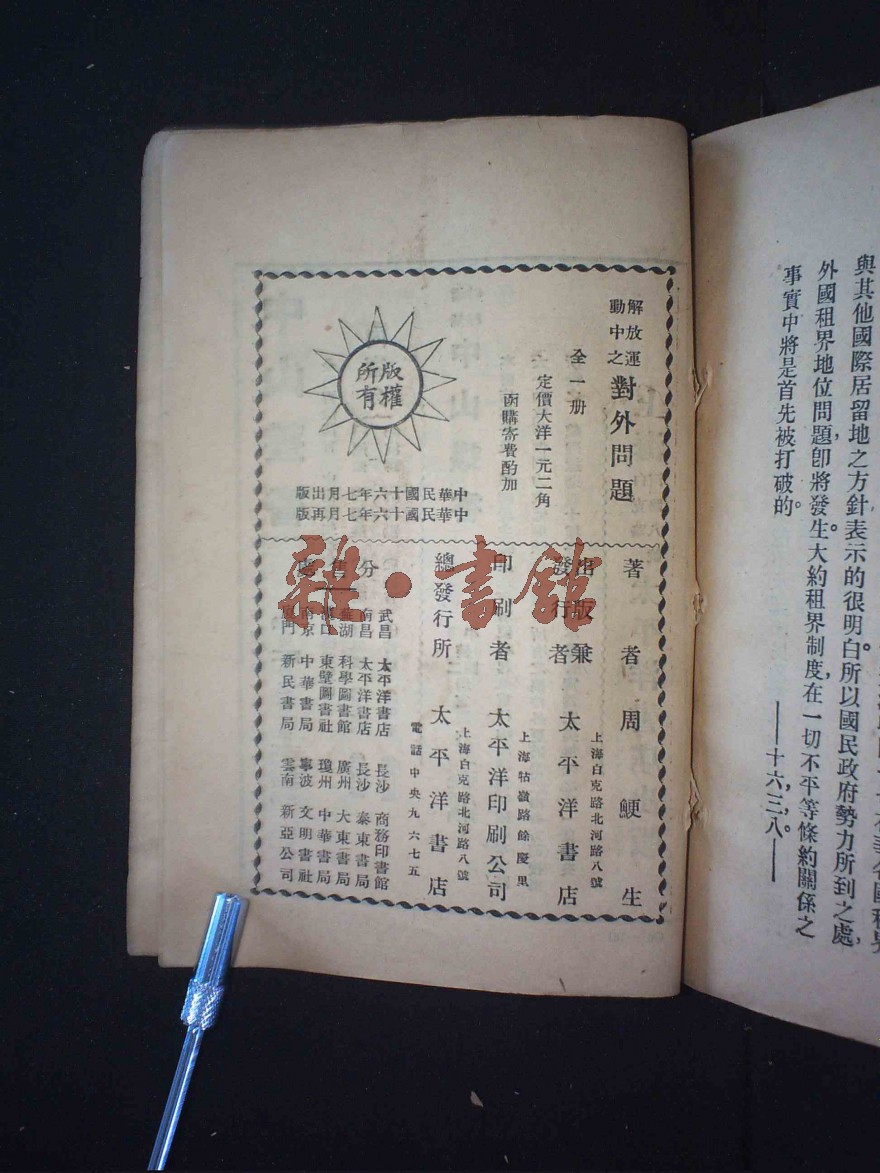 與其他國際居留地之方針表示的很明白。所以國民政府勢力所到之處,
外國租界地位問題,卽將發生。大約租界制度,在一切不平等條約關係之
事實中將是首先被打破的。
——十六,三,八。——
解放運
動中之
對外問題
全一册
定價大洋一元二角
函購寄費酌加
版權
所有
版出月七年六十國民華中
版再月七年六十國民華中
著者 周鯁生
出版兼
發行者 太平洋書店
上海白克路北河路八號
印刷者 太平洋印刷公司
上海牯嶺路餘慶里
總發行所 太平洋書店
上海白克路北河路八號
電話中央九六七五
處售分
武昌 太平洋書店 長沙 商務印書館
南昌 太平洋書店 長沙 泰東書局
蕪湖 科學圖書館 廣州 大東書局
漢口 東壁圖書社 瓊州 中華書局
南京 中華書局 寧波 文明書社
廈門 新民書局 雲南 新亞公司
雜·書館